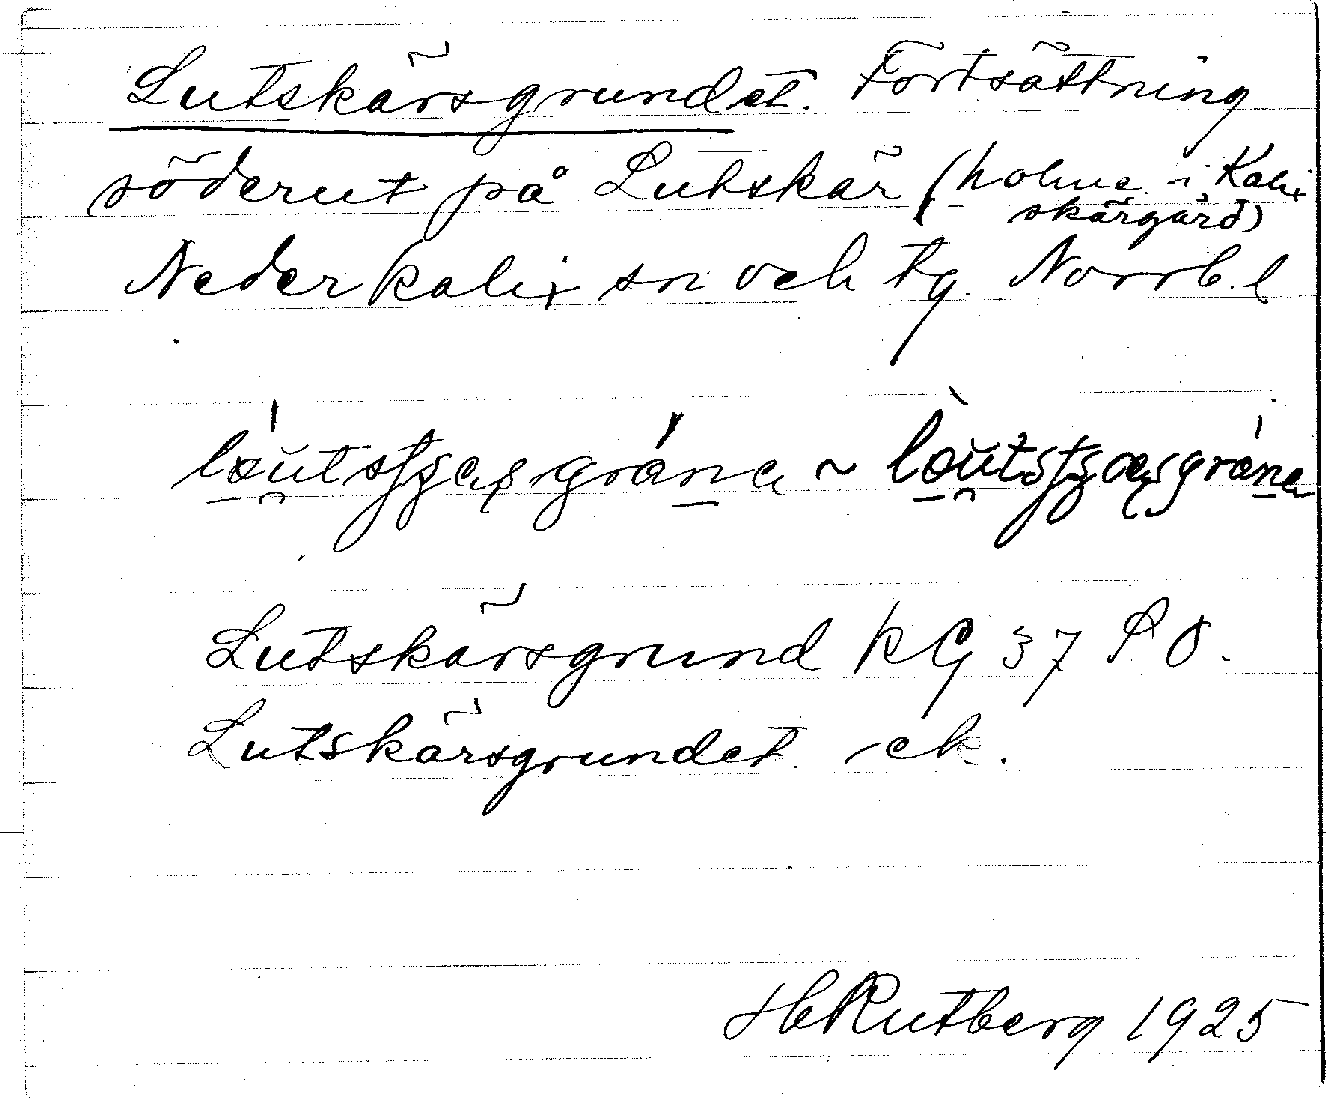 Lutskärsgrundet. Fortsättning
söderut på Lutskär (holme i Kalix
skärgård)
Nederkalix sn och tg. Norrb. l
Lutskärsgrund KG 37 S.O.
Lutskärsgrundet ek.
H Rutberg 1925